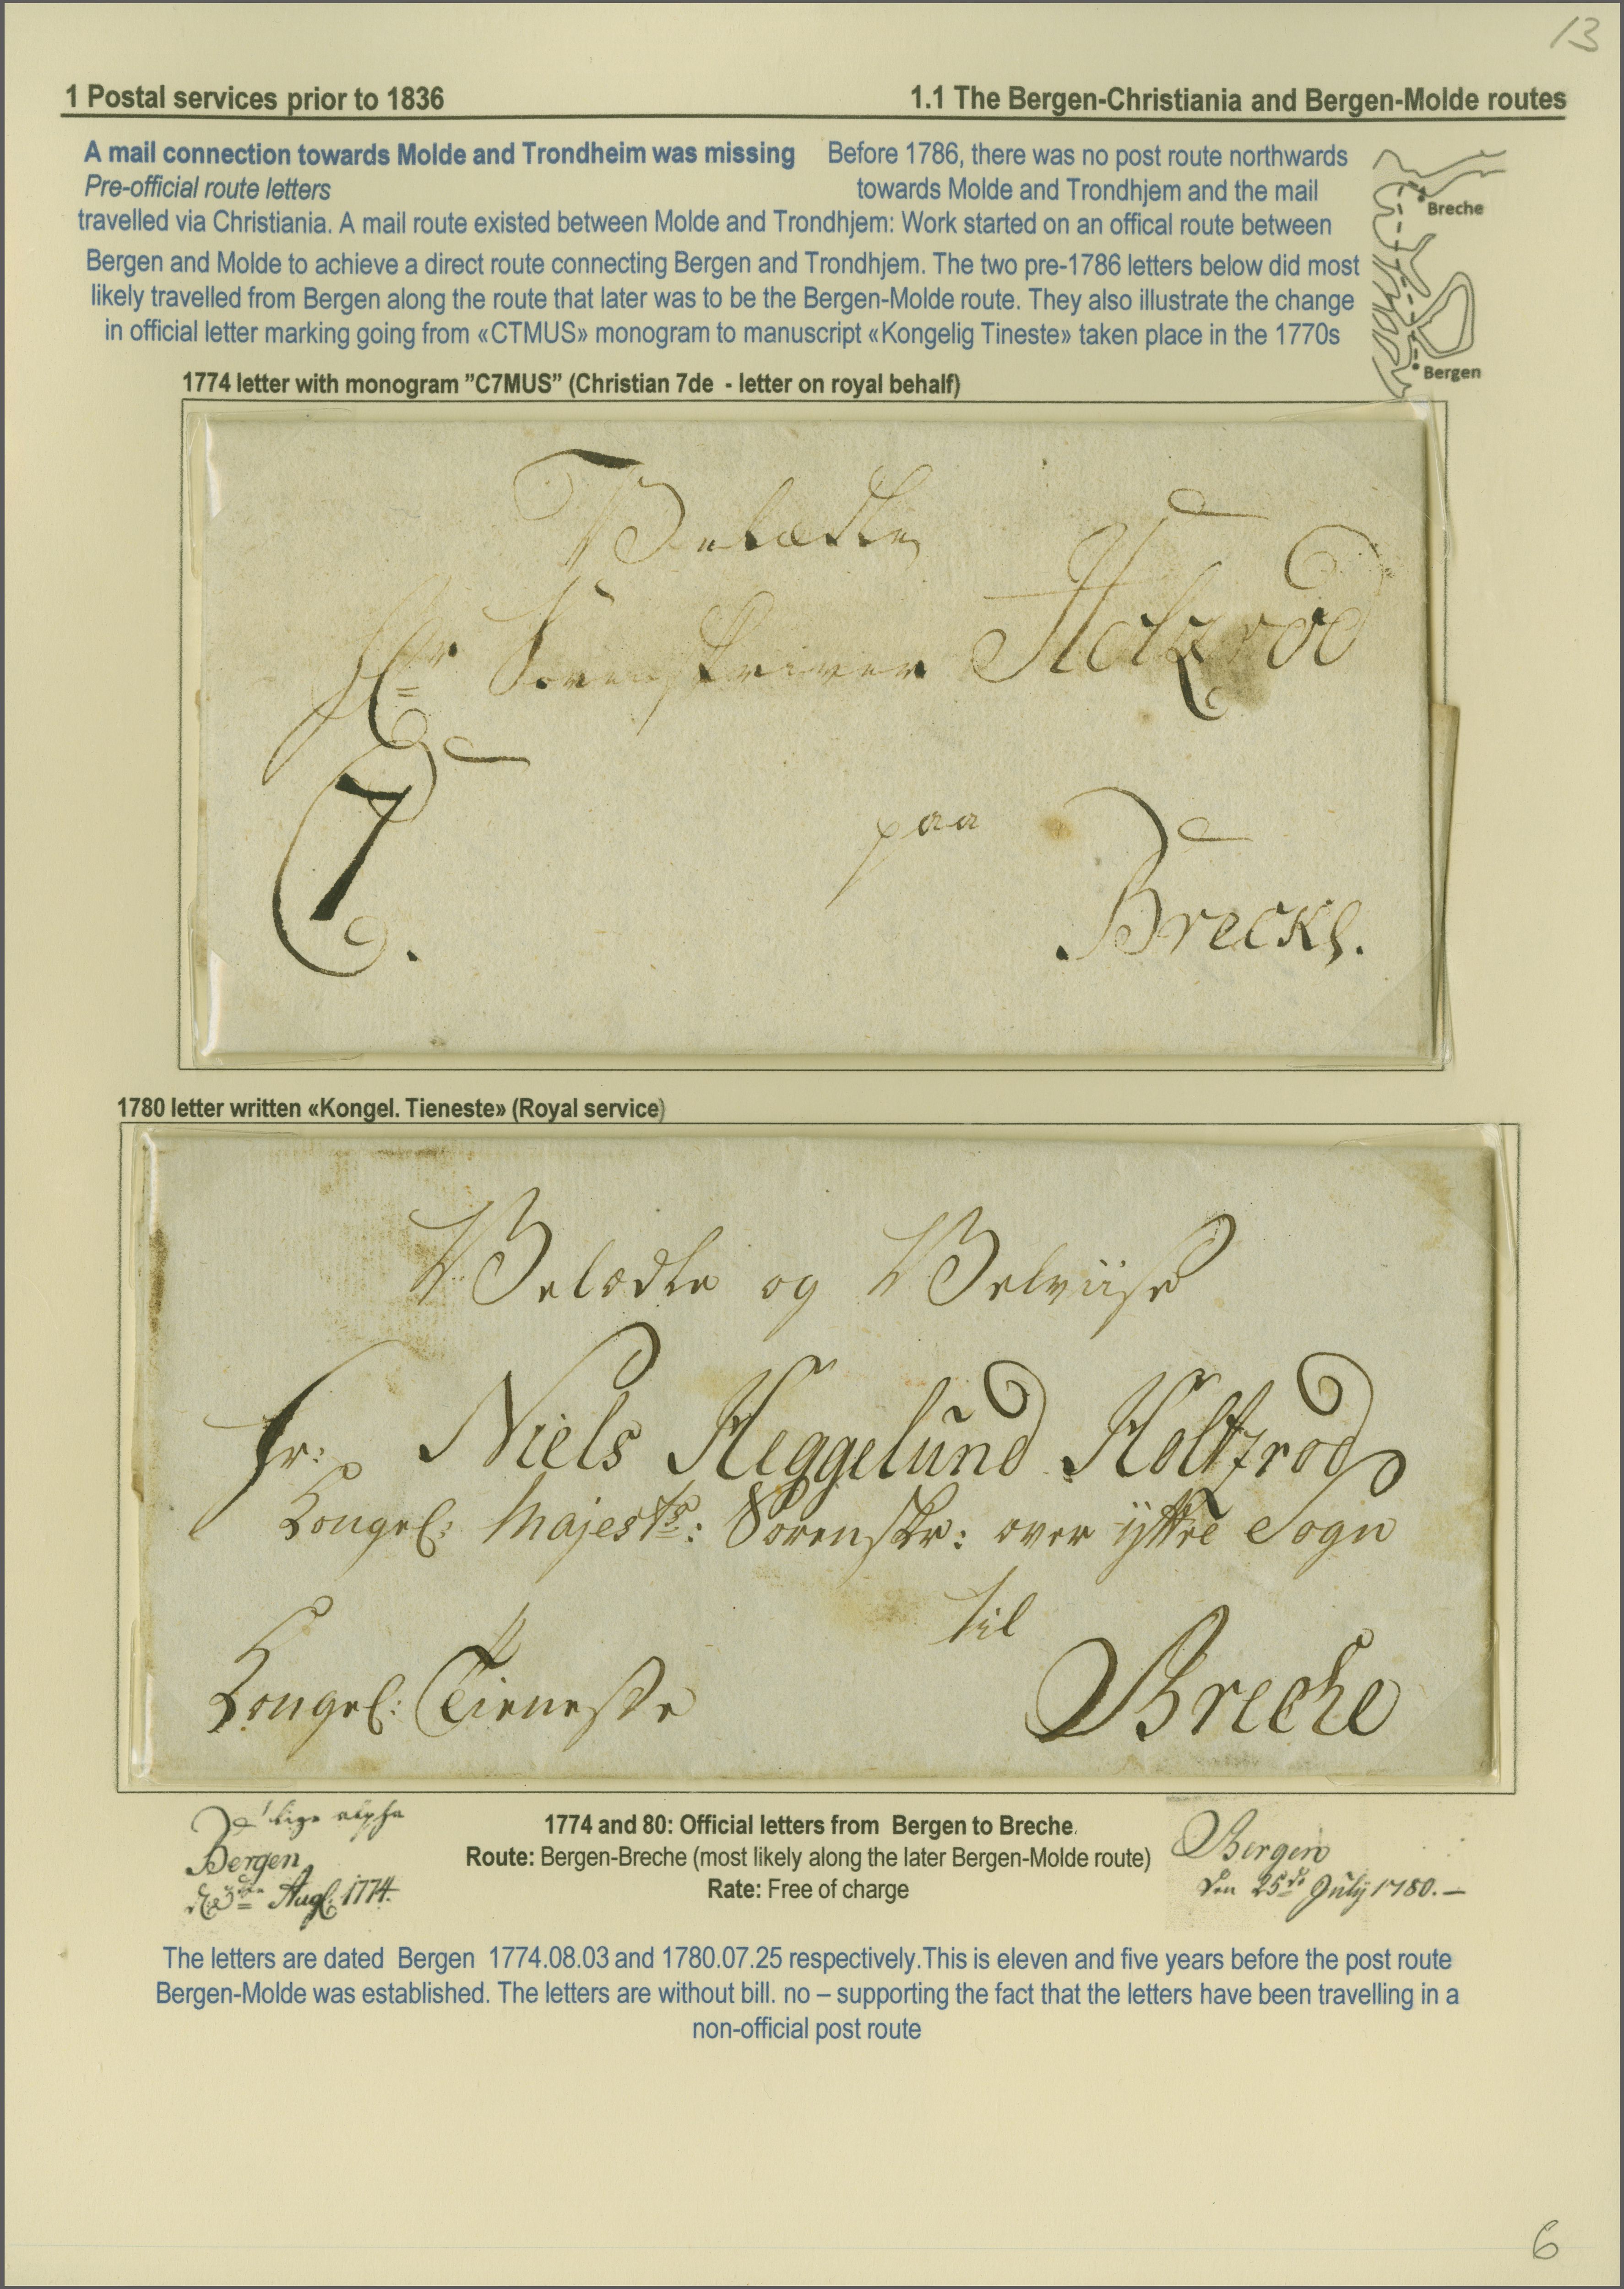 13
1 Postal services prior to 1836
1.1 The Bergen-Christiania and Bergen-Molde routes
A mail connection towards Molde and Trondheim was missing
Before 1786, there was no post route northwards
Pre-official route letters
towards Molde and Trondhjem and the mail
travelled via Christiania. A mail route existed between Molde and Trondhjem: Work started on an offical route between
Bergen and Molde to achieve a direct route connecting Bergen and Trondhjem. The two pre-1786 letters below did most
likely travelled from Bergen along the route that later was to be the Bergen-Molde route. They also illustrate the change
in official letter marking going from «CTMUS» monogram to manuscript «Kongelig Tineste» taken place in the 1770s
Breche
Bergen
1774 letter with monogram ”C7MUS” (Christian 7de - letter on royal behalf)
Velædle
Hr Sorenskriver Holzrod
C7.
paa
Brecke.
1780 letter written «Kongel. Tieneste» (Royal service)
Velædle og Velviise
Hr: Niels Heggelund Holtzrod
Kongel: Majestts: Sorenskr: over ÿttre Sogn
til
Kongel: Tieneste
Breche
Bergen
Augl. 1774.
1774 and 80: Official letters from Bergen to Breche.
Route: Bergen-Breche (most likely along the later Bergen-Molde route)
Rate: Free of charge
Bergen
den 25de Julÿ 1780.–
The letters are dated Bergen 1774.08.03 and 1780.07.25 respectively.This is eleven and five years before the post route
Bergen-Molde was established. The letters are without bill. no – supporting the fact that the letters have been travelling in a
non-official post route
6